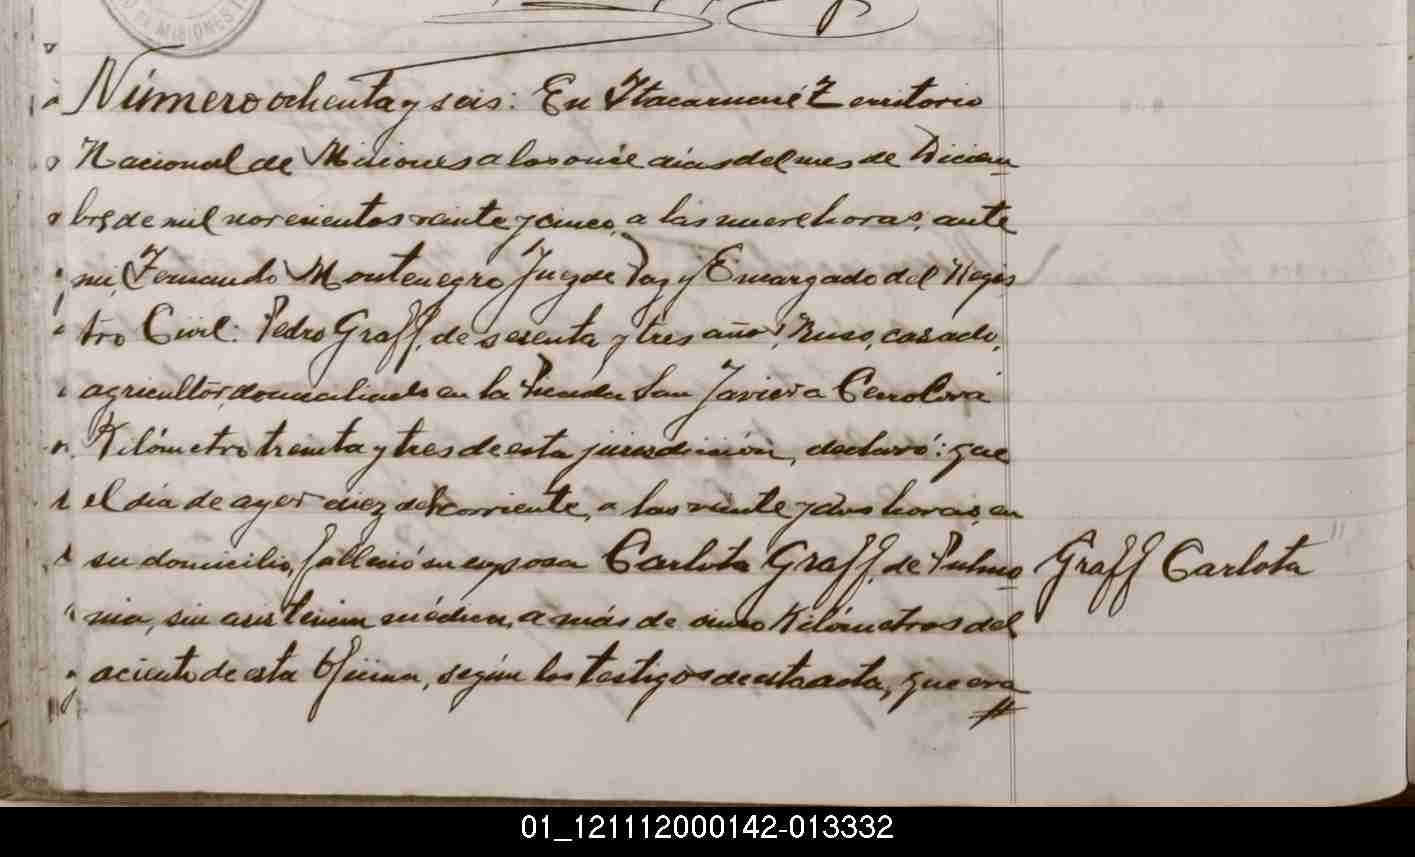 DE MISIONES
Número ochenta y seis: En Itacaruaré Territorio
Nacional de Misiones a los once días del mes de Diciem
bre de mil novecientos veinte y cinco, a las nueve horas, ante
mi, Fernando Montenegro Juez de Paz y Encargado del Regis
tro Civil: Pedro Graff, de sesenta y tres años, Ruso, casado,
agricultor, domiciliado en la San Javier a Cerro Corá
Kilómetro treinta y tres de esta jurisdicción, declaró: que
el dia de ayer diez del corriente, a las veinte y dos horas, en
su domicilio, falleció su esposa Carlota Graff, de Pulmo
nia, sin asistencia médica, a más de cinco Kilómetros del
aciento de esta Oficina, según los testigos de esta acta, que era
Graff Carlota
01_121112000142-013332